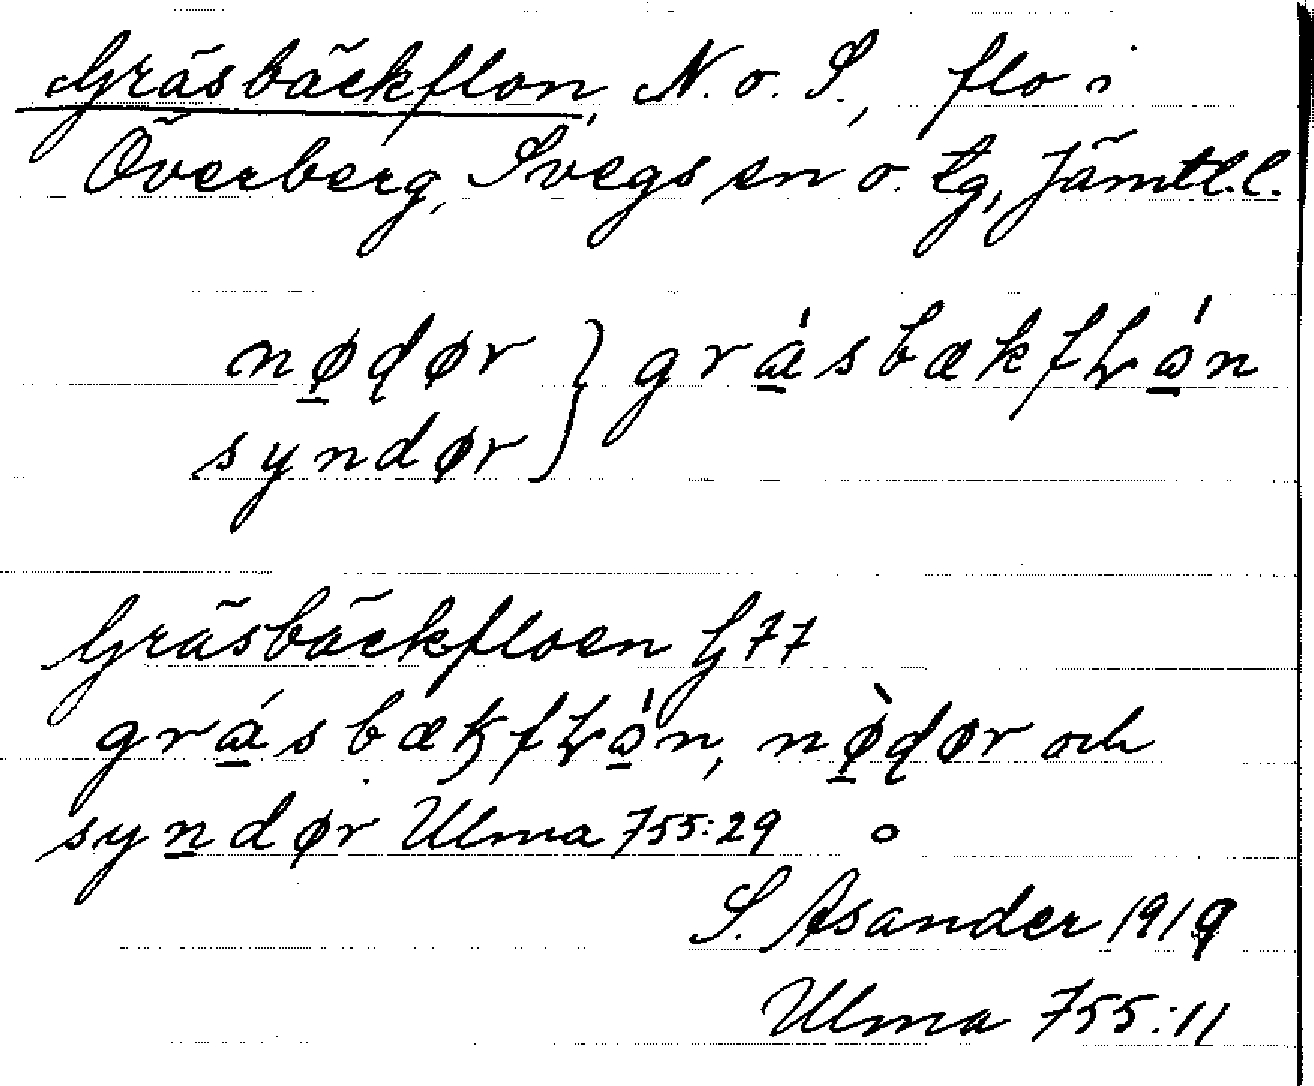 Gräsbäckflon, N. o. S., flo i
Överberg, Svegs sn o. tg, Jämtl.l.
nø̲dør } grǽ̲sbækflǻ̲n
syndør
Gräsbäckfloen G77
grǽ̲sbækflǻ̲n, nø̲̀dør och
syn̲dør Ulma 755:29 o
S. Åsander 1919
Ulma 755:11